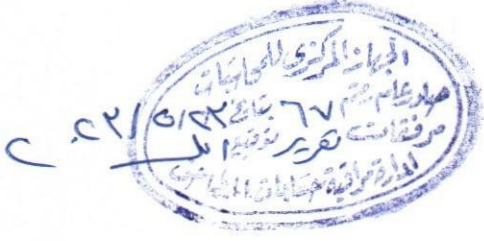 الجهاز المركزى للمحاسبات
صادر عام رقم ٦٧ بتاريخ ٢٠٢٣/٥/٢٣
مرفقات تقرير
إدارة مراقبة حسابات